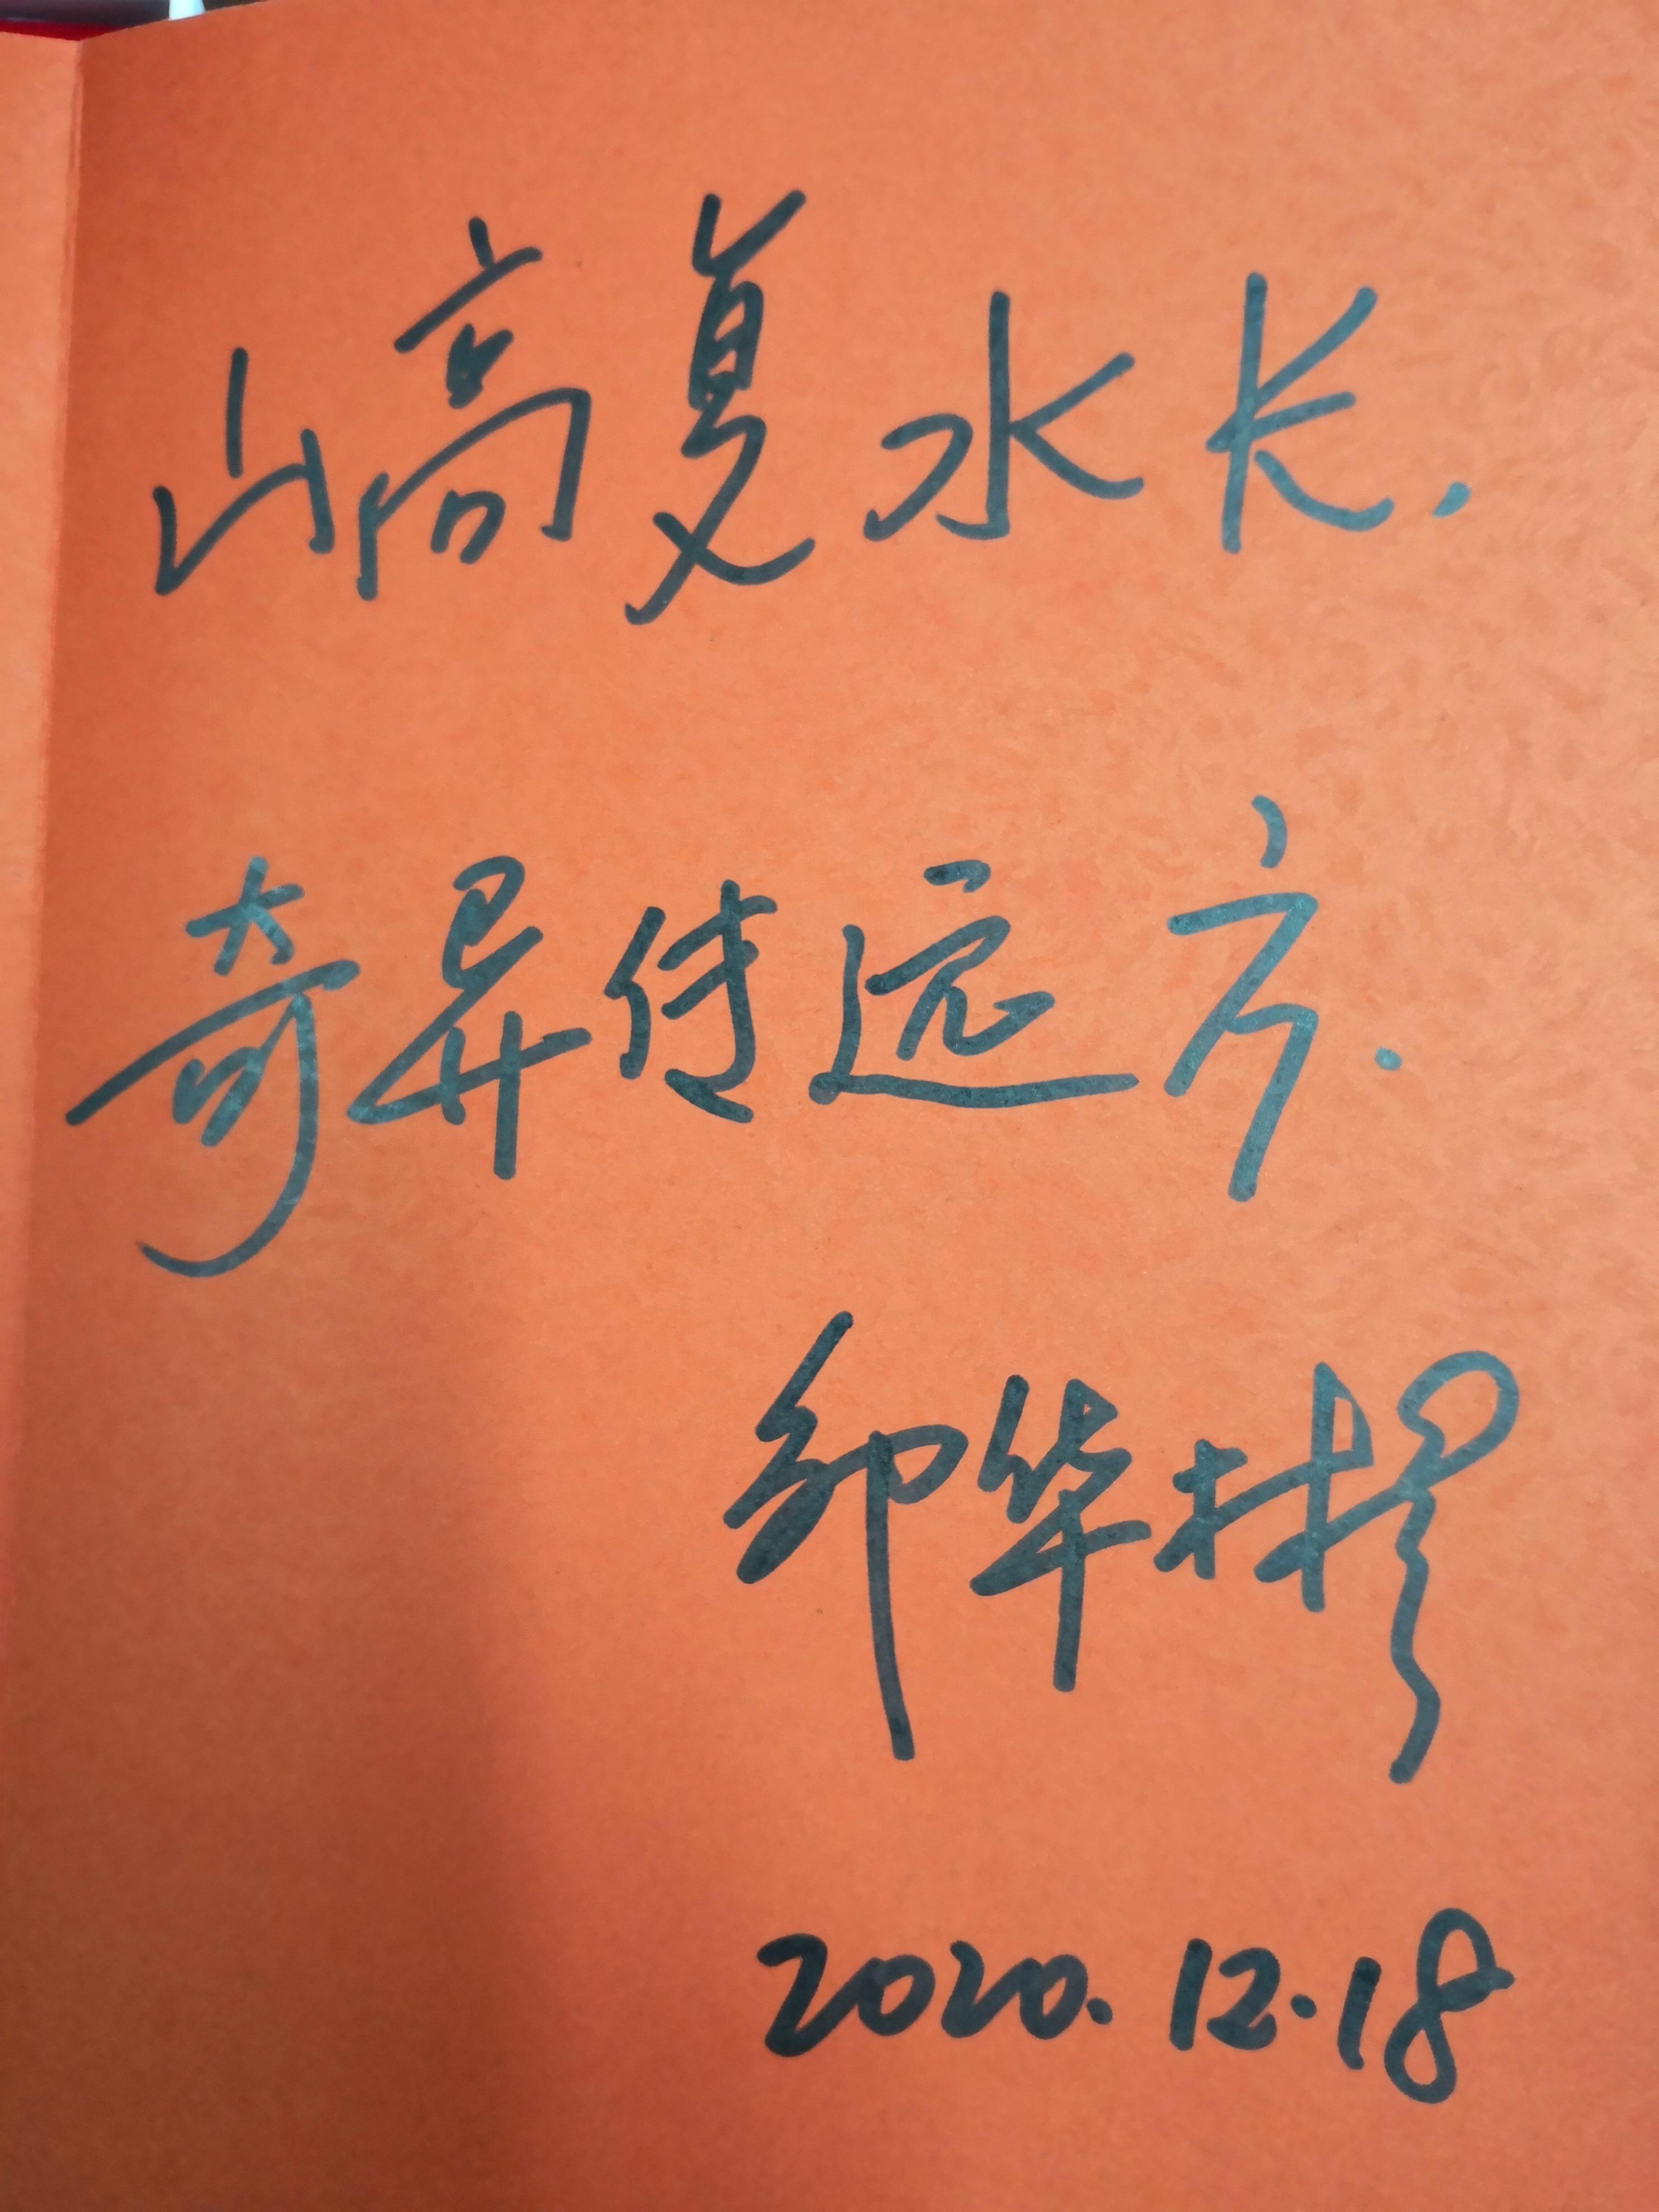 山高复水长.
奇异传远方.
邹华彬
2020.12.18